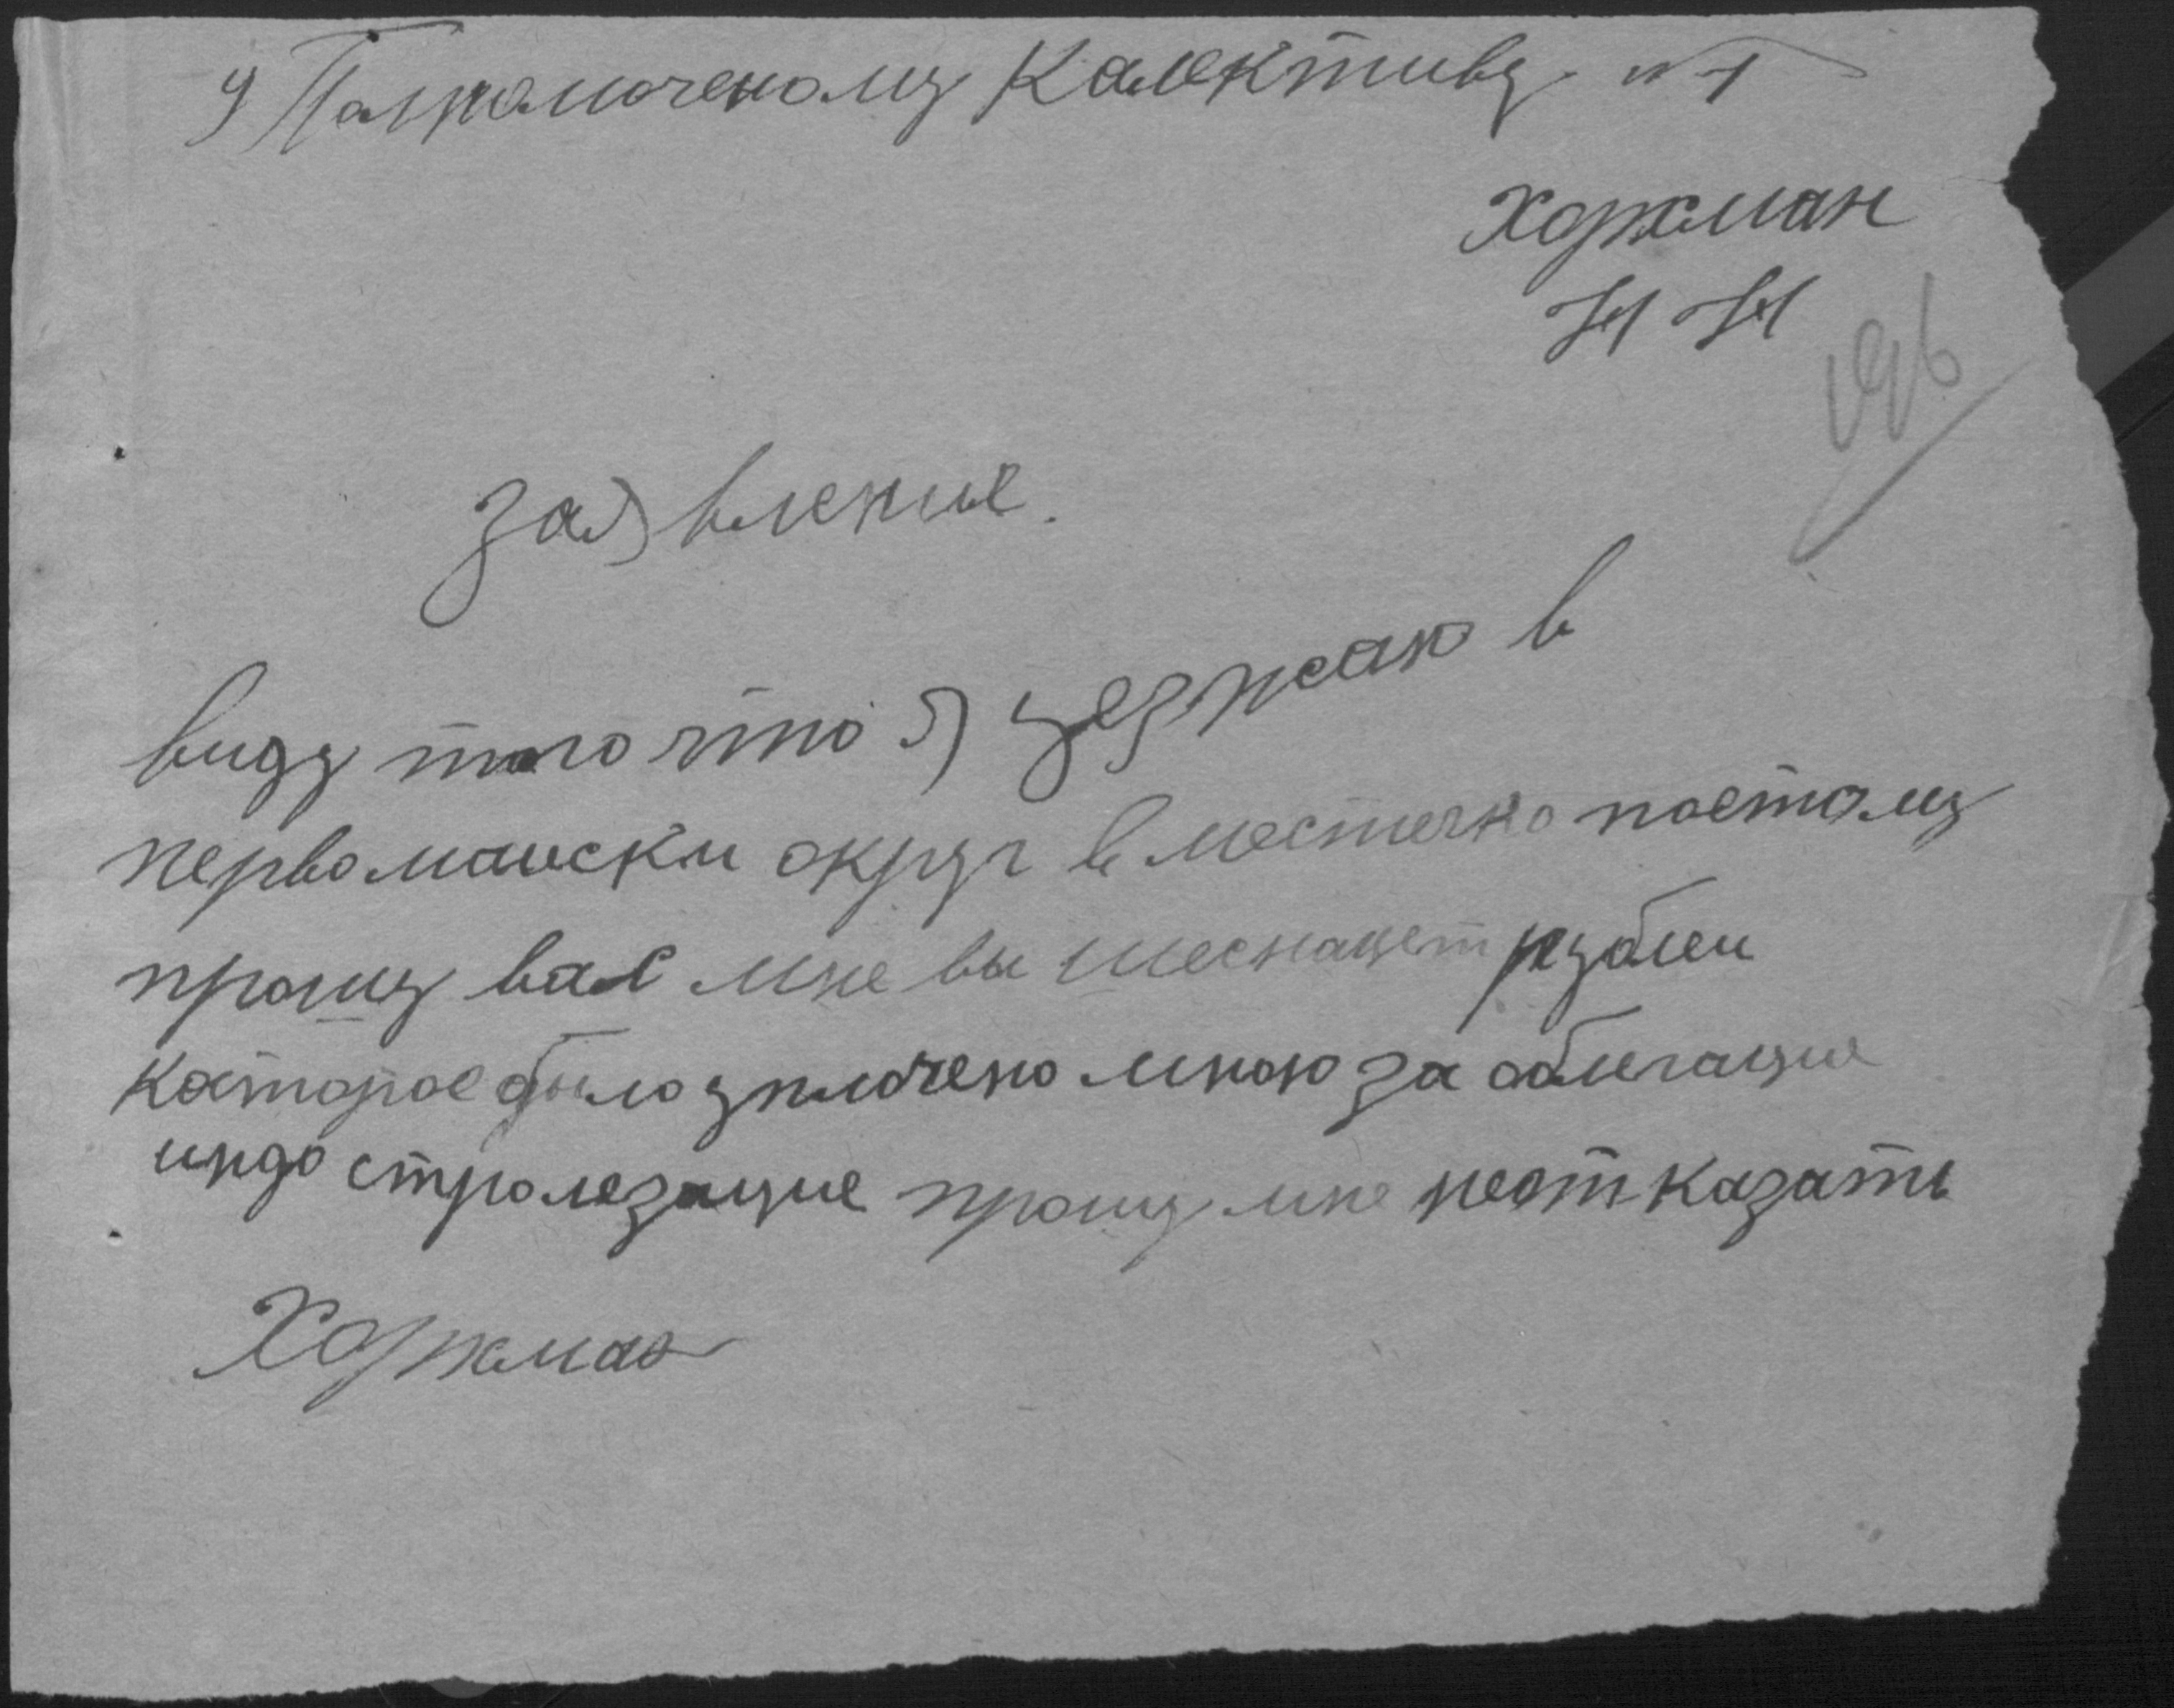 У Палномоченому Калективу №1
Хоржман
Н Н
196
заявление.
виду того что я уезжаю в
первомаиски округ в местечко поетому
прошу вас мне вы шеснацет рублеи
каторое было уплочено мною за облегацие
индо стролезацие прошу мне неотказать
Хоржман